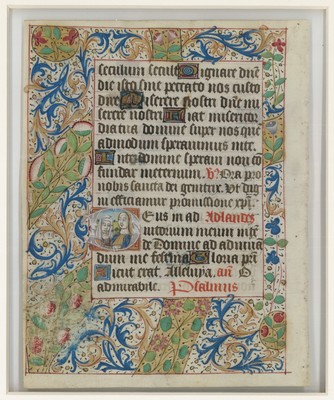 seculum seculi Dignare dne
die isto sine peccato nos custo
dire Miserere nostri dne mi
serere nostri Fiat misericor
dia tua domine super nos que
admodum speravimus in te.
In te domine speravi non co
fundar in eternum. V. Ora pro
nobis sancta dei genitrix. Ut dig
ni efficiamur promissione xpi.
Deus in ad Ad laudes
iutorium meum inte
de Domine ad adiuva
dum me festina Gloria pri
Sicut erat. Alleluya. an. O
admirabile. Psalmus